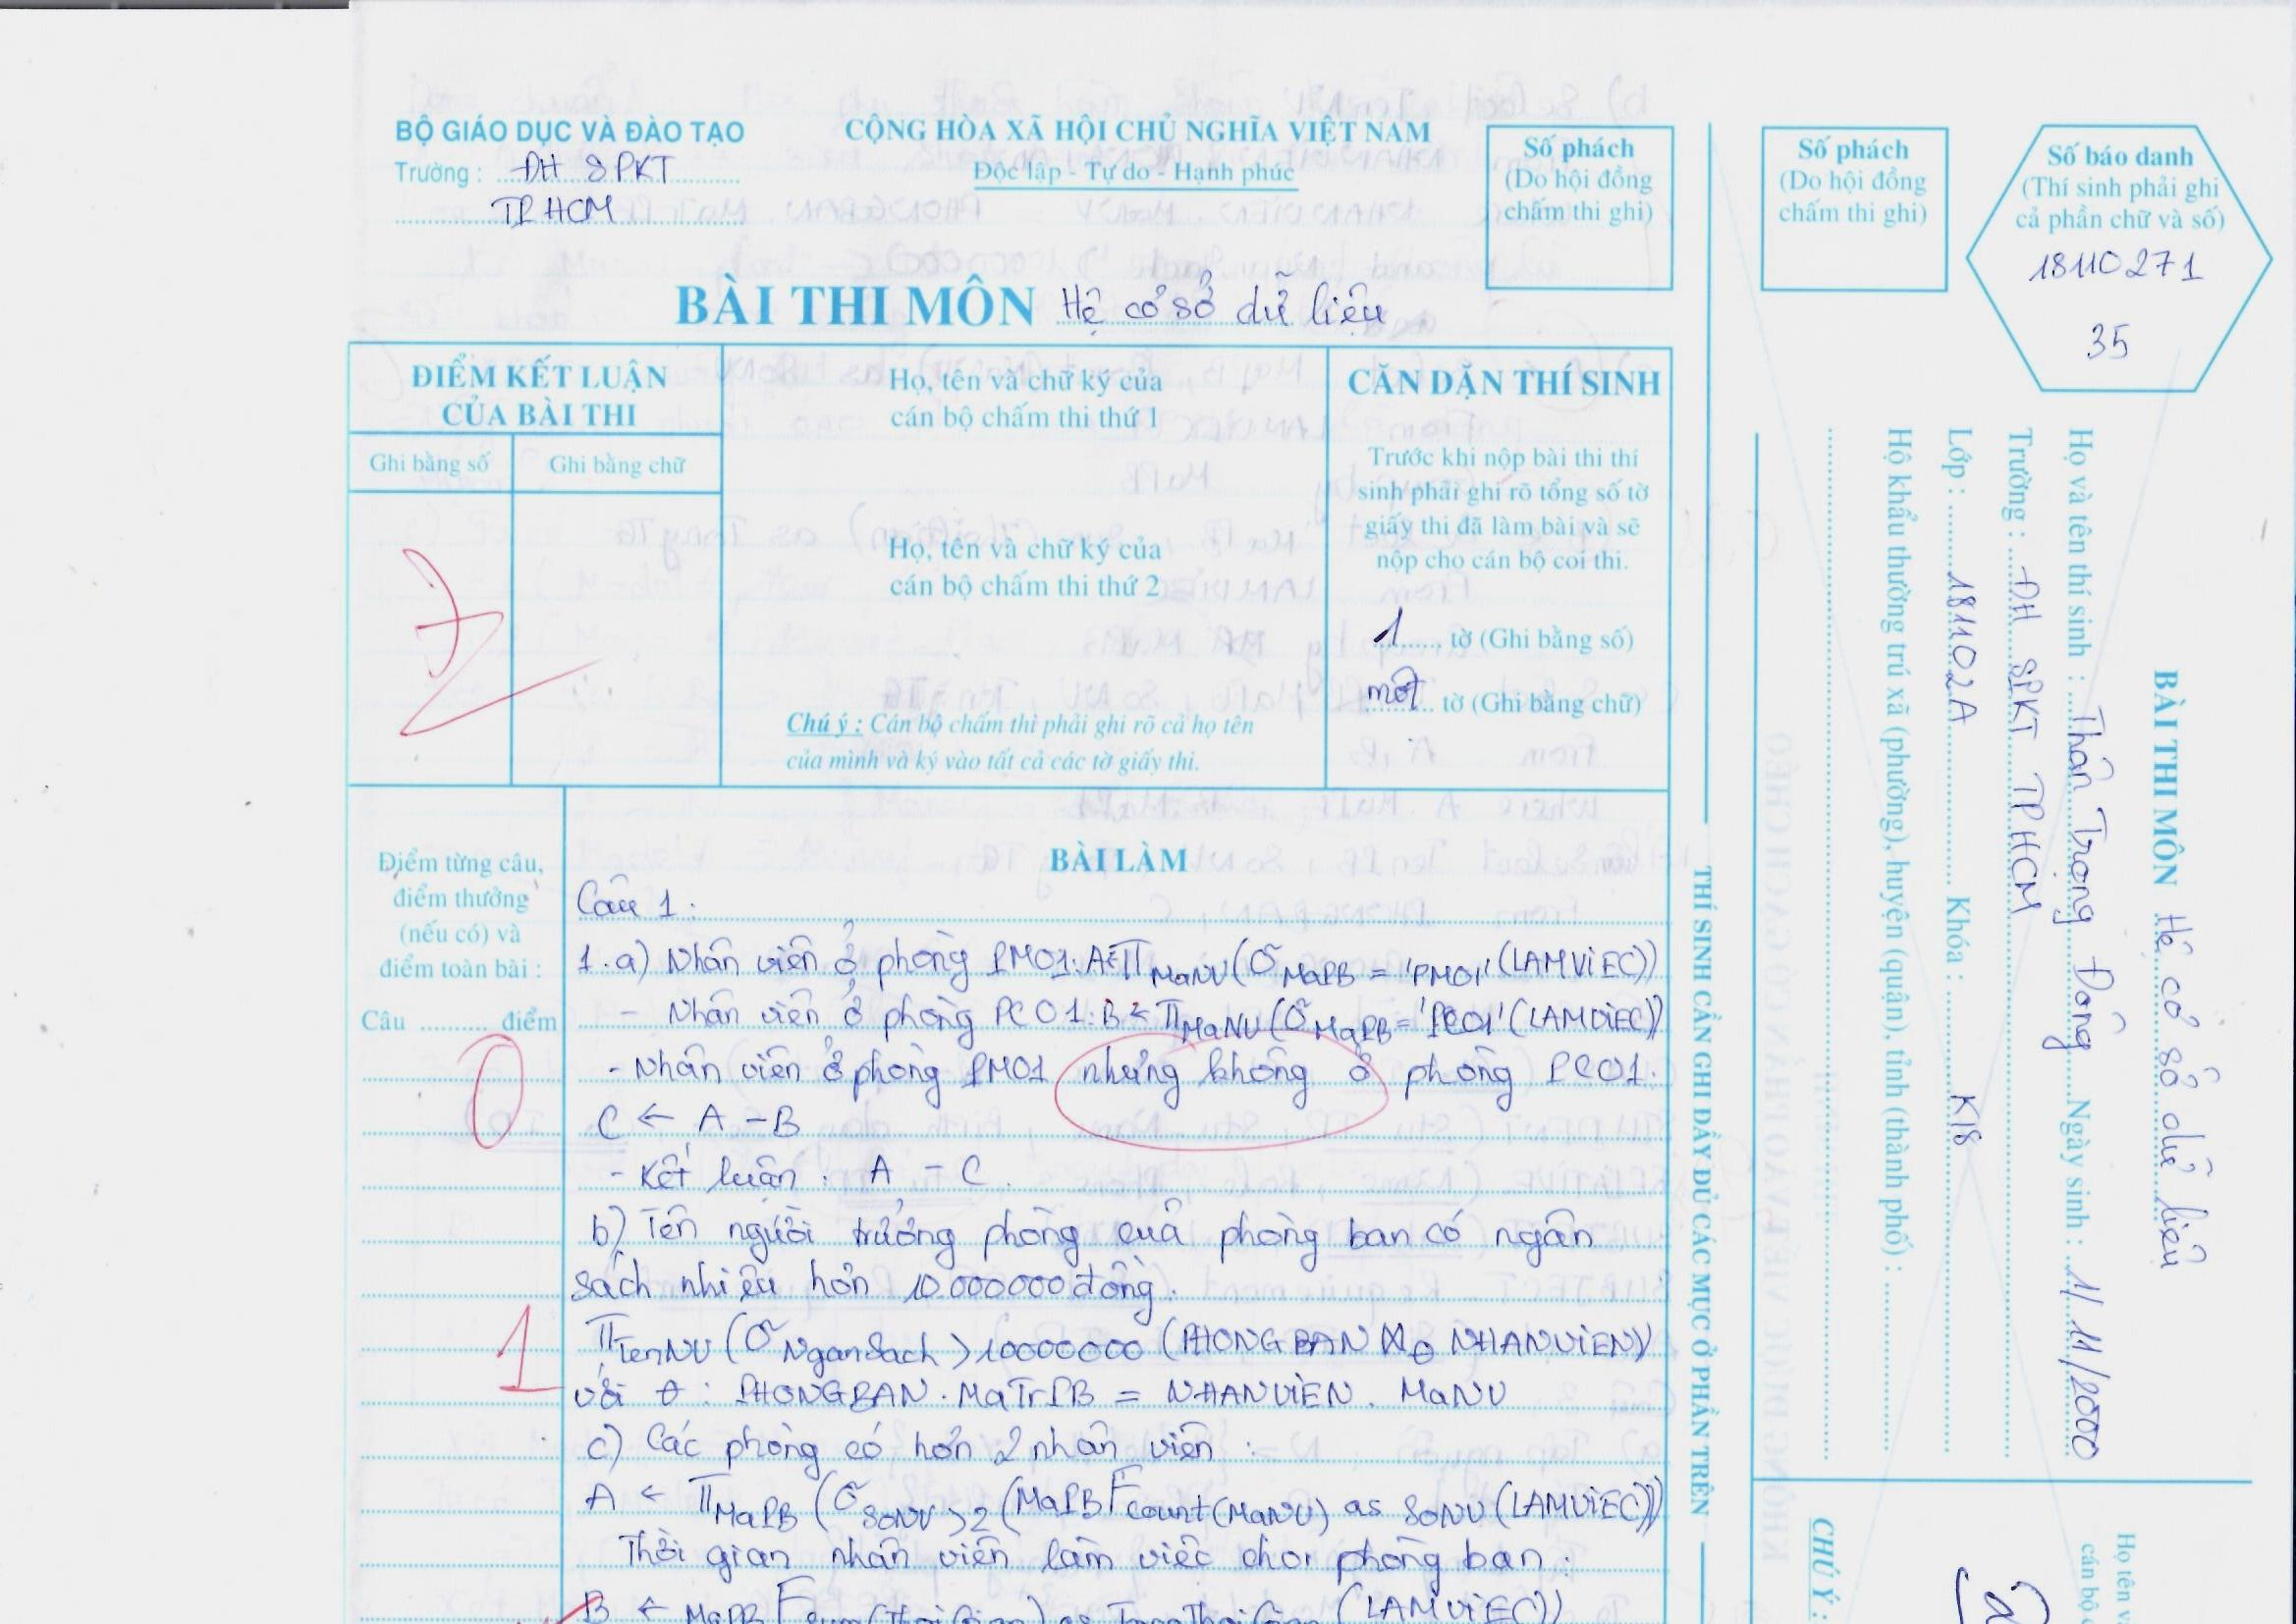 BỘ GIÁO DỤC VÀ ĐÀO TẠO
Trường : ĐH SPKT
TP HCM
CỘNG HÒA XÃ HỘI CHỦ NGHĨA VIỆT NAM
Độc lập - Tự do - Hạnh phúc
Số phách
(Do hội đồng
chấm thi ghi)
BÀI THI MÔN Hệ cơ sở dữ liệu
ĐIỂM KẾT LUẬN
CỦA BÀI THI
Ghi bằng số
Ghi bằng chữ
7
Họ, tên và chữ ký của
cán bộ chấm thi thứ 1
Họ, tên và chữ ký của
cán bộ chấm thi thứ 2
Chú ý : Cán bộ chấm thi phải ghi rõ cả họ tên
của mình và ký vào tất cả các tờ giấy thi.
CĂN DẶN THÍ SINH
Trước khi nộp bài thi thí
sinh phải ghi rõ tổng số tờ
giấy thi đã làm bài và sẽ
nộp cho cán bộ coi thi.
1 tờ (Ghi bằng số)
một tờ (Ghi bằng chữ)
Điểm từng câu,
điểm thưởng
(nếu có) và
điểm toàn bài :
Câu .......... điểm
0
1
BÀI LÀM
Câu 1:
1.a) Nhân viên ở phòng PM01: A ← π MaNV (σ MaPB = 'PM01' (LAMVIEC))
- Nhân viên ở phòng PC01: B ← π MaNV (σ MaPB = 'PC01' (LAMVIEC))
- Nhân viên ở phòng PM01 nhưng không ở phòng PC01.
C ← A - B
- Kết luận : A - C.
b) Tên người trưởng phòng của phòng ban có ngân
sách nhiều hơn 10 000000 đồng.
π TenNV (σ NganSach > 10000000 (PHONGBAN ⋈θ NHANVIEN))
với θ : PHONGBAN.MaTrPB = NHANVIEN.MaNV
c) Các phòng có hơn 2 nhân viên :
A ← π MaPB (σ SoNV > 2 (MaPB F count(MaNV) as SoNV (LAMVIEC)))
Thời gian nhân viên làm việc cho phòng ban :
B ← MaPB F sum(ThoiGian) as TongThoiGian (LAMVIEC))
THÍ SINH CẦN GHI ĐẦY ĐỦ CÁC MỤC Ở PHẦN TRÊN
Số phách
(Do hội đồng
chấm thi ghi)
Số báo danh
(Thí sinh phải ghi
cả phần chữ và số)
18110271
35
BÀI THI MÔN Hệ cơ sở dữ liệu
Họ và tên thí sinh : Thân Trọng Đông Ngày sinh : 1/11/2000
Trường : ĐH SPKT TP HCM
Lớp : 181102A Khóa : K18
Hộ khẩu thường trú xã (phường), huyện (quận), tỉnh (thành phố) :
CHÚ Ý :
Họ tên
cán bộ